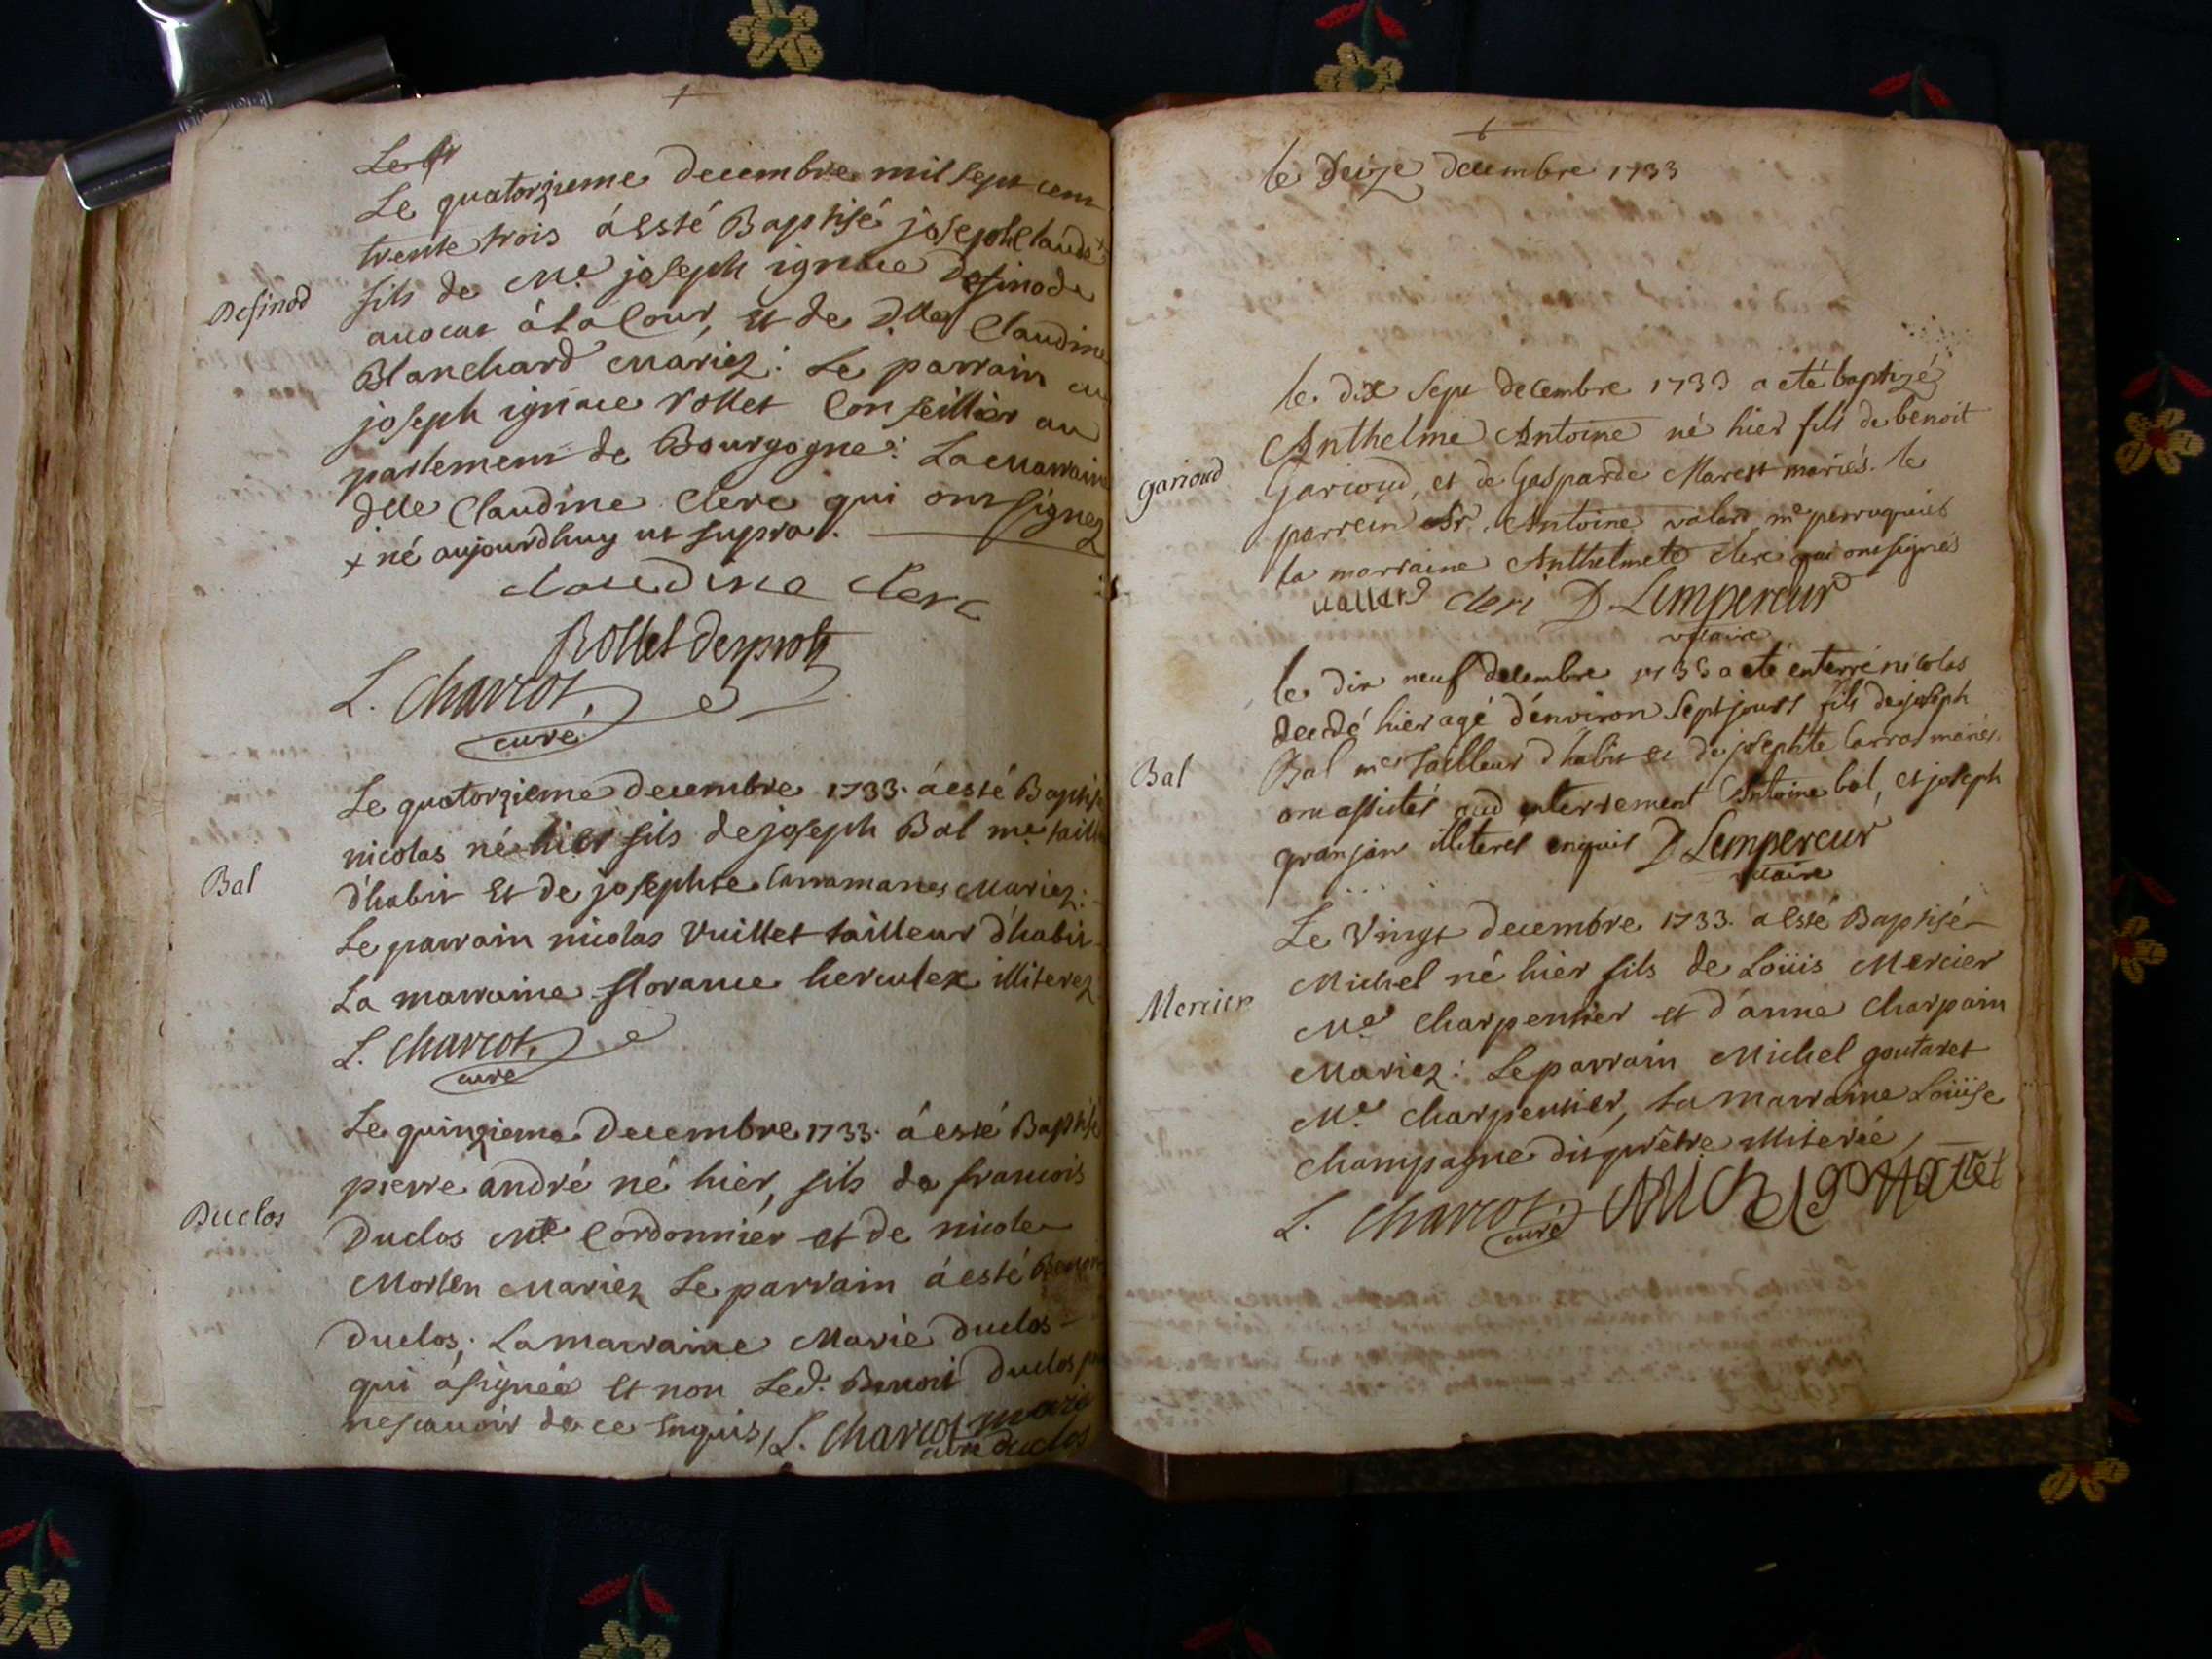 Le quatorzieme decembre mil sept cent
trente trois á esté Baptisé joseph claude +
Desinod
fils de Me. joseph ignace Desinod
avocat á la Cour, Et de Dlle Claudine
Blanchard Mariez: Le parrain
joseph ignace rollet Conseillier au
parlement de Bourgogne: La Marraine
dlle Claudine Clerc qui ont signez
+ né aujourdhuy ut supra.
claudine clerc
Rollet
L. Charcot,
curé
Le quatorzieme decembre 1733. á esté Baptisé
nicolas né hier fils de joseph Bal me. taill
Bal
d'habit Et de josephte Mariez:
Le parrain nicolas Vuillet tailleur d'habit
La marraine florance herculex illiterez
L. Charcot,
curé
Le quinzieme Decembre 1733. á esté Baptisé
pierre andré né hier, fils de francois
Duclos
Duclos Me Cordonnier et de nicole
Morlen Mariez Le parrain á esté Benoit
Duclos; La marraine Marie Duclos
qui á signée Et non Led. Benoit Duclos p
nescavoir de ce Enquis, L. Charcot marie
curé duclos
le seize decembre 1733
le dix sept decembre 1733 a eté baptizé
Anthelme Antoine né hier fils de benoit
garioud
Garioud, et de Gasparde Marest mariés. le
parrein Sr. Antoine valard me perruquier
la marraine Anthelmete clerc qui ont signés
vallard cleri D Lempereur
vicaire
le dix neuf decembre 1733 a eté enterré nicolas
decedé hier agé d'environ sept jours fils de joseph
Bal
Bal me tailleur d'habit et de josephte mariés.
ont assistés aud enterrement Antoine bal, et joseph
granjan illiterés enquis D Lempereur
vicaire
Le Vingt decembre 1733. a Esté Baptisé
Michel né hier fils de Loüis Mercier
Mercier
Me. Charpentier et d'anne Charpain
Mariez: Le parrain Michel goutaret
Me. Charpentier, La marraine Loüise
Champagne dit qu'être illiterée,
L. Charcot, curé Michel